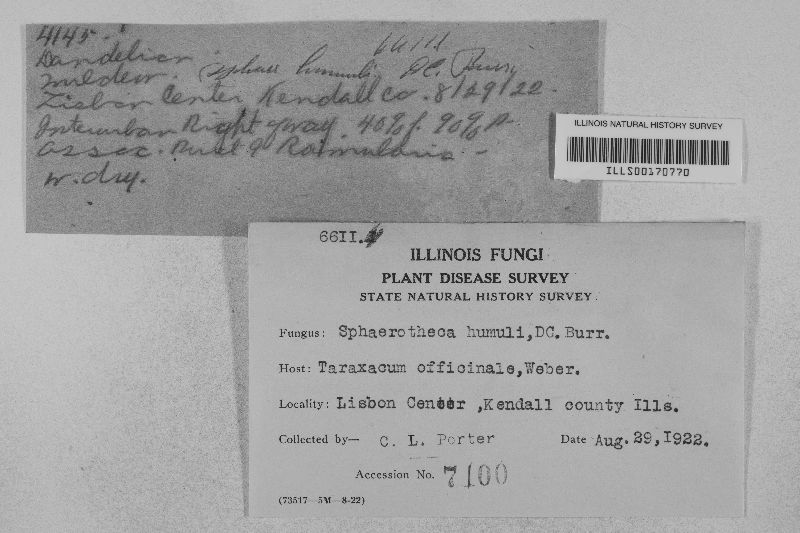 4145.
6611
Dandelion.
mildew. (Sphae humuli, DC. Burr,
Lisbon Center Kendall co. 8/29/22.
Interurban Right of way. 40% f. 90% P.
assoc. Rust & Ramularia -
w. dry.
ILLINOIS NATURAL HISTORY SURVEY
ILLS00170770
66II.
ILLINOIS FUNGI
PLANT DISEASE SURVEY
STATE NATURAL HISTORY SURVEY.
Fungus: Sphaerotheca humuli,DC. Burr.
Host: Taraxacum officinale,Weber.
Locality: Lisbon Center ,Kendall county Ills.
Collected by— C. L. Porter Date Aug. 29,I922.
Accession No. 7100
(73517—5M—8-22)